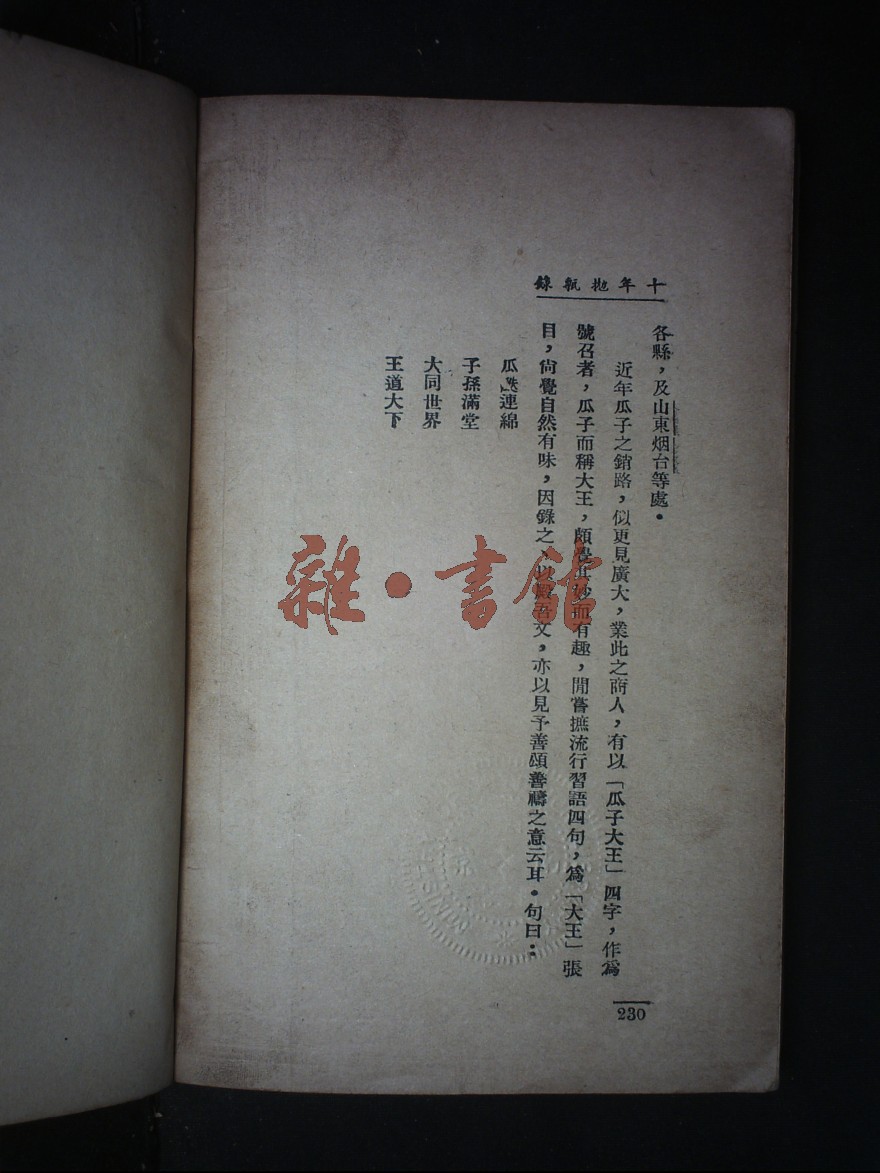 十年拋瓻錄
各縣，及山東烟台等處。
近年瓜子之銷路，似更見廣大，業此之商人，有以「瓜子大王」四字，作爲
號召者，瓜子而稱大王，頗覺其妙而有趣，閒嘗摭流行習語四句，爲「大王」張
目，尙覺自然有味，因錄之，以殿吾文，亦以見予善頌善禱之意云耳。句曰：
瓜瓞連綿
子孫滿堂
大同世界
王道大下
230
雜·書館